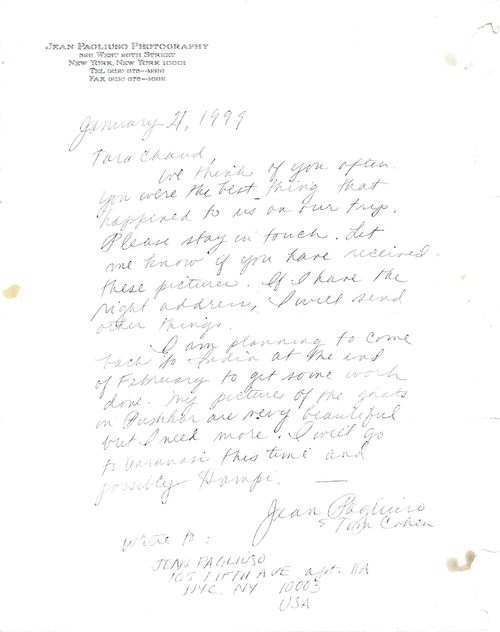 JEAN PAGLIUSO PHOTOGRAPHY
NEW YORK, NEW YORK 10001
January 21, 1999
Tara Chand,
We think of you often.
You were the best thing that
happened to us on our trip.
Please stay in touch. Let
me know if you have received
these pictures. If I have the
right address, I will send
other things.
I am planning to come
back to India at the end
of February to get some work
done. My pictures of the ghats
in Pushkar are very beautiful
but I need more. I will go
to Varanasi this time and
possibly Hampi. —
Jean Pagliuso
& Tom Cohen
Write to:
JEAN PAGLIUSO
105 FIFTH AVE apt. 11A
NYC. NY 10003
USA